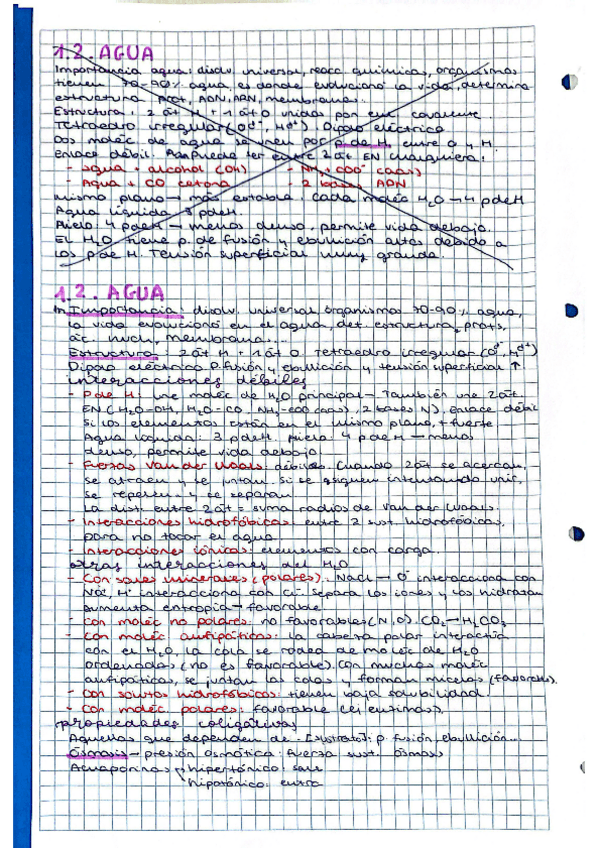 1.2. AGUA
Importancia agua: disolv. universal, reacc químicas, organismos
tienen 70-90% agua, es donde evolucionó la vida, determina
estructura prot, ADN, ARN, membranas...
Estructura: 2 át H + 1 át O unidos por enl. covalente.
Tetraedro irregular (Oδ-, Hδ+). Dipolo eléctrico
Dos moléc de agua se unen por p. de H, entre O y H.
Enlace débil. puede ser entre 2 át EN cualquiera:
- agua + alcohol (OH) - NH3+COO- (caas)
- Agua + CO cetona - 2 bases ADN
mismo plano → más estable. Cada moléc H2O → 4 p de H
Agua líquida 3 p de H.
Hielo: 4 p de H → menos denso, permite vida debajo.
El H2O tiene p. de fusión y ebullición altos debido a
los p de H. Tensión superficial muy grande.
1.2. AGUA
Importancia: disolv. universal, organismos 70-90% agua,
la vida evolucionó en el agua, det. estructura prots,
ác. nucl, membrana...
Estructura: 2 át H + 1 át O. Tetraedro irregular (Oδ-, Hδ+)
Dipolo eléctrico. P. fusión y ebullición y tensión superficial ↑
interacciones débiles
- P de H: une moléc de H2O principal- También une 2 át.
EN (H2O-OH, H2O-CO, NH3-COO (caas), 2 bases N), enlace débil
Si los elementos están en el mismo plano, + fuerte
Agua líquida: 3 p de H. Hielo: 4 p de H → menos
denso, permite vida debajo.
- Fuerzas Van der Waals: débiles. Cuando 2 át se acercan,
se atraen y se juntan. Si se siguen intentando unir,
se repelen y se separan
La dist. entre 2 át = suma radios de Van der Waals.
- Interacciones hidrofóbicas: entre 2 sust. hidrofóbicas,
para no tocar el agua
- Interacciones iónicas: elementos con carga.
otras interacciones del H2O
- Con sales minerales (polares). NaCl → O- interacciona con
Na+, H+ interacciona con Cl-. Separa los iones y los hidratan
aumenta entropía → favorable
- con moléc no polares: no favorables (N, O). CO2 → H2CO3
- Con moléc anfipáticas: la cabeza polar interactúa
con el H2O, la cola se rodea de moléc de H2O
ordenadas (no es favorable). Con muchas moléc
anfipáticas, se juntan las colas y forman micelas (favorable).
- Con solutos hidrofóbicos: tienen baja solubilidad.
- Con moléc polares: favorable (ej enzimas).
propiedades coligativas
Aquellas que dependen de [sustrato]: p. fusión, ebullición...
Ósmosis → presión osmótica: fuerza sust. ósmosis
Acuaporinas hipertónico: sale
hipotónico: entra